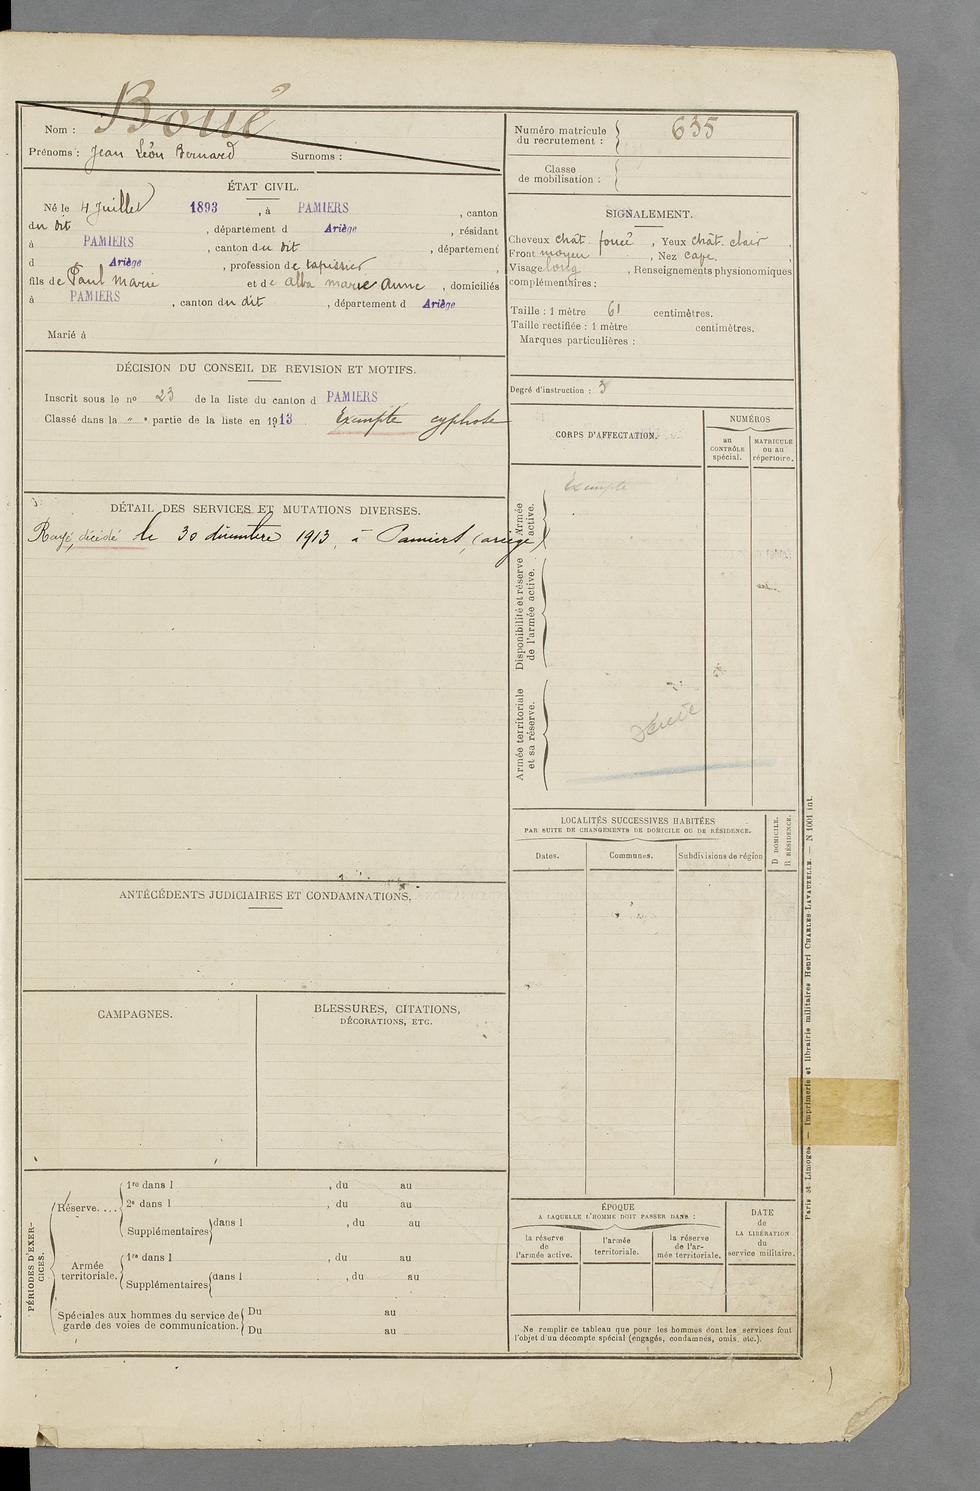 Nom : Boué
Prénoms : Jean Léon Bernard Surnoms :
ÉTAT CIVIL.
Né le 4 Juillet 1893, à PAMIERS, canton
du dit, département d Ariège, résidant
à PAMIERS, canton du dit, département
d Ariège, profession de tapissier,
fils de Paul Marie et de Alba marie Anne, domiciliés
à PAMIERS, canton du dit, département d Ariège
Marié à
DÉCISION DU CONSEIL DE REVISION ET MOTIFS.
Inscrit sous le no 23 de la liste du canton d PAMIERS
Classé dans la " e partie de la liste en 1913 Exempté cyphose
DÉTAIL DES SERVICES ET MUTATIONS DIVERSES.
Rayé, décédé le 30 décembre 1913, à Pamiers, (ariège)
ANTÉCÉDENTS JUDICIAIRES ET CONDAMNATIONS.
CAMPAGNES.
BLESSURES, CITATIONS,
DÉCORATIONS, ETC.
PÉRIODES D'EXER-
CICES.
Réserve....
1re dans l , du au
2e dans l , du au
Supplémentaires dans l , du au
Armée
territoriale.
1re dans l , du au
Supplémentaires dans l , du au
Spéciales aux hommes du service de
garde des voies de communication.
Du au
Du au
Numéro matricule
du recrutement : 635
Classe
de mobilisation :
SIGNALEMENT.
Cheveux chât. foncé, Yeux chât. clair,
Front moyen, Nez cave.
Visage long, Renseignements physionomiques
complémentaires :
Taille : 1 mètre 61 centimètres.
Taille rectifiée : 1 mètre centimètres.
Marques particulières :
Degré d'instruction : 3
CORPS D'AFFECTATION.
NUMÉROS
au
CONTRÔLE
spécial.
MATRICULE
ou au
répertoire.
Armée
active.
Exempté
Disponibilité et réserve
de l'armée active.
Armée territoriale
et sa réserve.
Décédé
LOCALITÉS SUCCESSIVES HABITÉES
PAR SUITE DE CHANGEMENTS DE DOMICILE OU DE RÉSIDENCE.
D DOMICILE.
R RÉSIDENCE.
Dates. Communes. Subdivisions de région
ÉPOQUE
A LAQUELLE L'HOMME DOIT PASSER DANS :
la réserve
de
l'armée active.
l'armée
territoriale.
la réserve
de l'ar-
mée territoriale.
DATE
de
LA LIBÉRATION
du
service militaire.
Ne remplir ce tableau que pour les hommes dont les services font
l'objet d'un décompte spécial (engagés, condamnés, omis, etc.).
Paris et Limoges. — Imprimerie et librairie militaires Henri CHARLES-LAVAUZELLE. — N 1001 int.